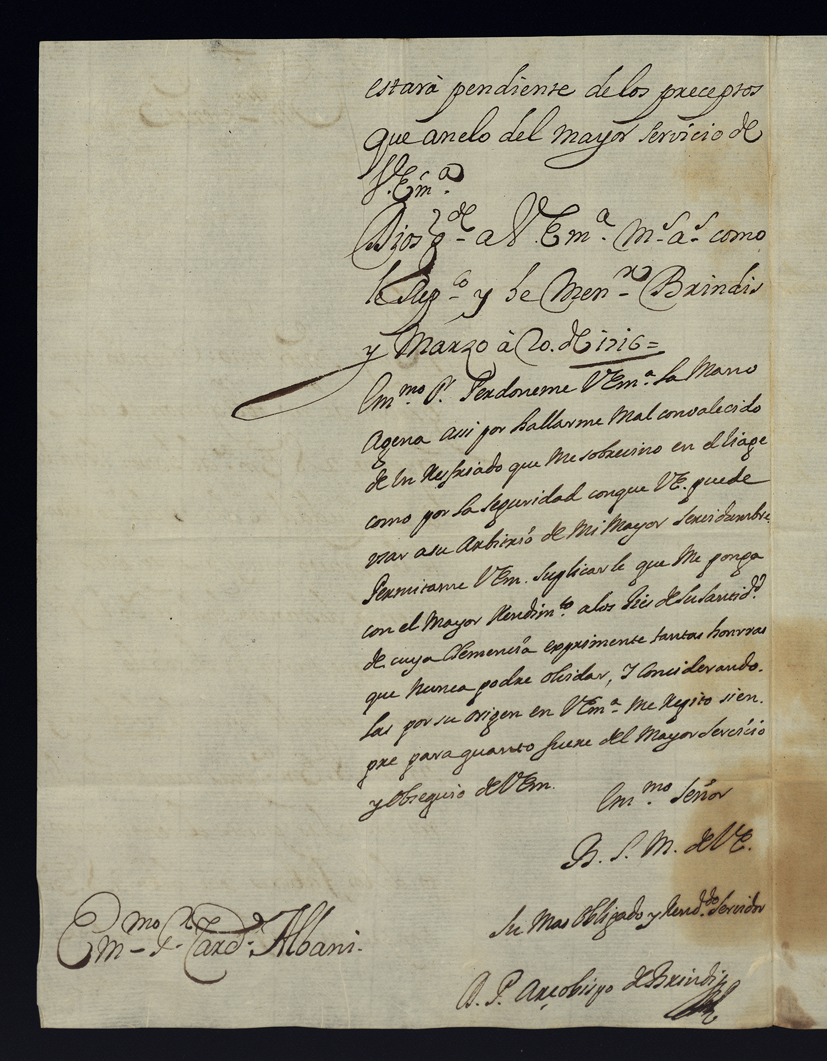 estarà pendiente de los preceptos
que anelo del mayor servicio de
V. Em.ª
Dios g.de a V. Em.ª m.s a.s como
le Sup.co y he Men.r Brindis
y Marzo à 20. de 1716=
Em.mo S.r Perdoneme VEm.ª la Mano
Agena assi por hallarme Mal convalecido
de Un Resfriado que Me sobrevino en el Viage
como por la seguridad conque VE. puede
usar a su Arbitrio de Mi Mayor servidumbre
Permitame VEm. suplicarle que Me ponga
con el Mayor Rendim.to a los Pies de Su Santid.d
de cuya Clemencia exprimente tantas honrras
que Nunca podre olvidar, Y Considerando-
las por su origen en VEm.ª Me Repito siem-
pre para quanto fuere del Mayor Servicio
y Obsequio de VEm.
Em.mo Señor
B. S. M. de VE.
Su Mas Obligado y Rend.do Servidor
A. P. Arçobispo de Brindis
Em.mo S.r Card.l Albani.